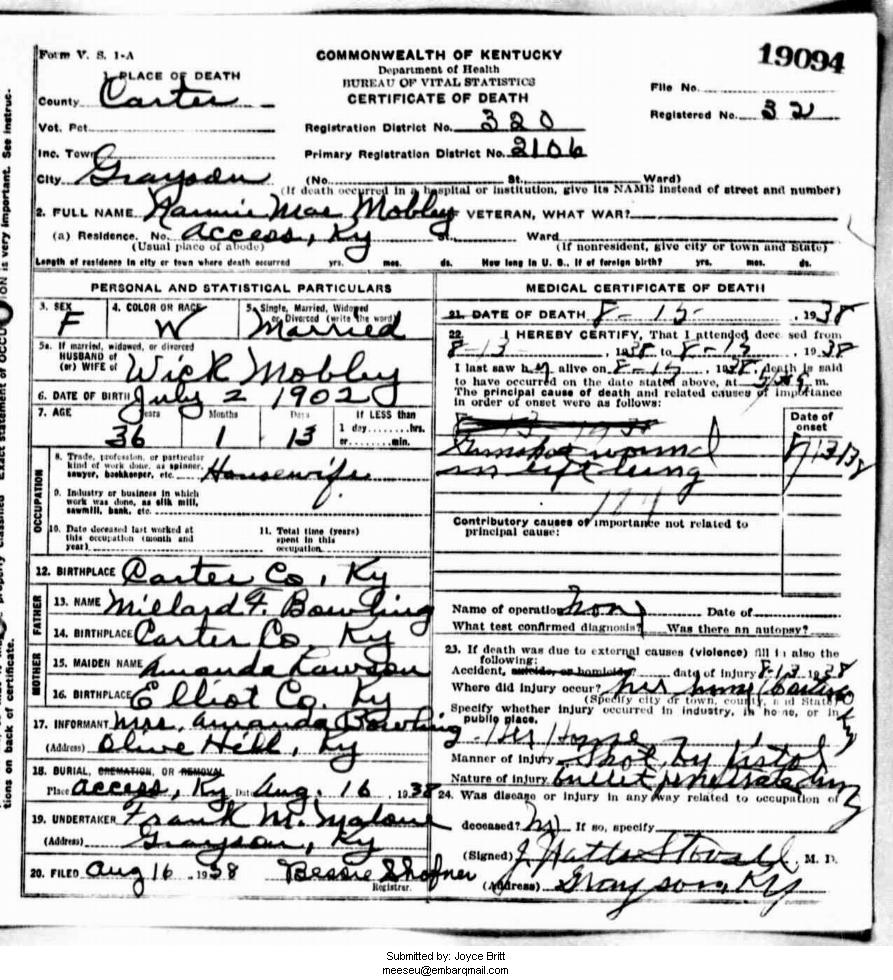 Form V. S. 1-A
COMMONWEALTH OF KENTUCKY
Department of Health
BUREAU OF VITAL STATISTICS
CERTIFICATE OF DEATH
19094
File No.
Registered No. 32
1. PLACE OF DEATH
County Carter
Vot. Pct.
Registration District No. 320
Inc. Town
Primary Registration District No. 2106
City Grayson (No. St., Ward)
(If death occurred in a hospital or institution, give its NAME instead of street and number)
2. FULL NAME Nannie Mae Mobley VETERAN, WHAT WAR?
(a) Residence. No. Access, Ky St., Ward
(Usual place of abode) (If nonresident, give city or town and State)
Length of residence in city or town where death occurred yrs. mos. ds. How long in U. S., if of foreign birth? yrs. mos. ds.
PERSONAL AND STATISTICAL PARTICULARS
3. SEX F
4. COLOR OR RACE W
5. Single, Married, Widowed or Divorced (write the word) Married
5a. If married, widowed, or divorced
HUSBAND of
(or) WIFE of Wick Mobley
6. DATE OF BIRTH July 2 1902
7. AGE Years Months Days If LESS than
36 1 13 1 day hrs.
or min.
OCCUPATION
8. Trade, profession, or particular
kind of work done, as spinner,
sawyer, bookkeeper, etc. Housewife
9. Industry or business in which
work was done, as silk mill,
sawmill, bank, etc.
10. Date deceased last worked at
this occupation (month and
year)
11. Total time (years)
spent in this
occupation
12. BIRTHPLACE Carter Co, Ky
FATHER
13. NAME Millard F. Bowling
14. BIRTHPLACE Carter Co Ky
MOTHER
15. MAIDEN NAME Amanda Lawson
16. BIRTHPLACE Elliot Co, Ky
17. INFORMANT Mrs. Amanda Bowling
(Address) Olive Hill, Ky
18. BURIAL, CREMATION, OR REMOVAL
Place Access, Ky Date Aug. 16, 1938
19. UNDERTAKER Frank M. Malone
(Address) Grayson, Ky
20. FILED Aug 16 1938 Bessie Shofner
Registrar.
MEDICAL CERTIFICATE OF DEATH
21. DATE OF DEATH 8-15-, 1938
22. I HEREBY CERTIFY, That I attended deceased from
8-13, 1938 to 8-15, 1938
I last saw h alive on 8-15, 1938, death is said
to have occurred on the date stated above, at m.
The principal cause of death and related causes of importance
in order of onset were as follows:
Date of
onset
8-13 1938
Gunshot wound 8/13/38
in left lung
Contributory causes of importance not related to
principal cause:
Name of operation Non Date of
What test confirmed diagnosis? Was there an autopsy?
23. If death was due to external causes (violence) fill in also the
following:
Accident, suicide, or homicide date of injury 8-13 1938
Where did injury occur? her home Carter Co Ky
(Specify city or town, county, and State)
Specify whether injury occurred in industry, in home, or in
public place.
Her Home
Manner of injury Shot by Pistol
Nature of injury bullet penetrated lung
24. Was disease or injury in any way related to occupation of
deceased? No If so, specify
(Signed) J. Watts Stovall, M. D.
(Address) Grayson, Ky
Submitted by: Joyce Britt
meeseu@embarqmail.com